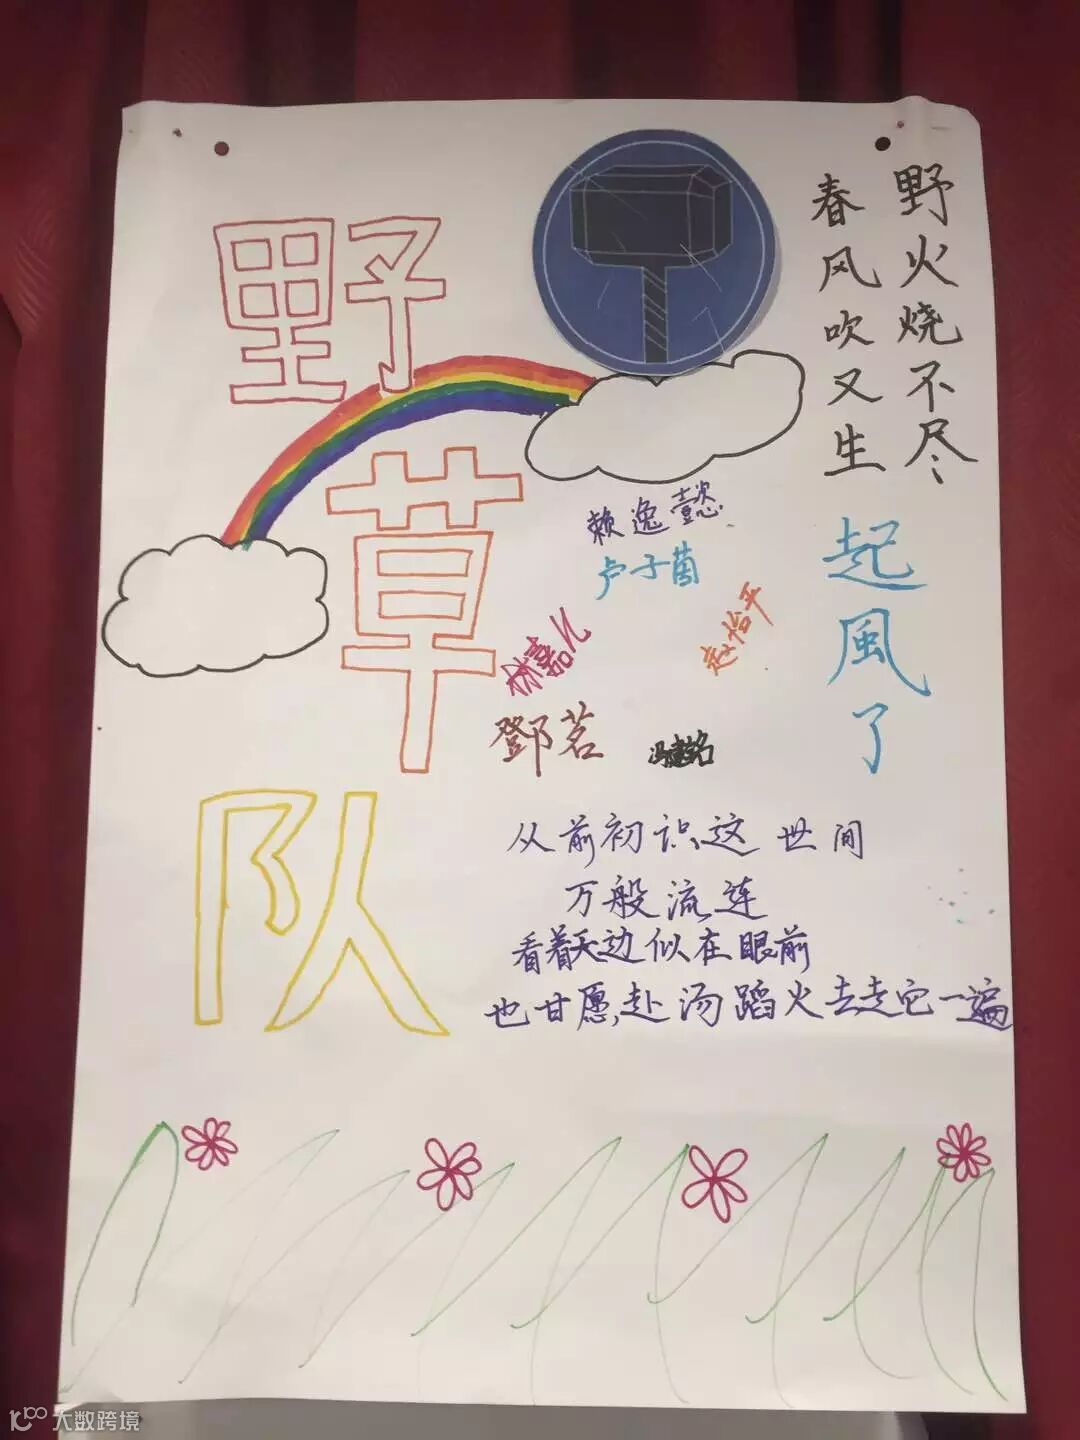 野草队
野火烧不尽、
春风吹又生
赖逸懿
卢子茵
林嘉儿
赵怡平
鄧茗
起風了
从前初识这世间
万般流连
看着天边似在眼前
也甘愿赴汤蹈火去走它一遍
大数跨境